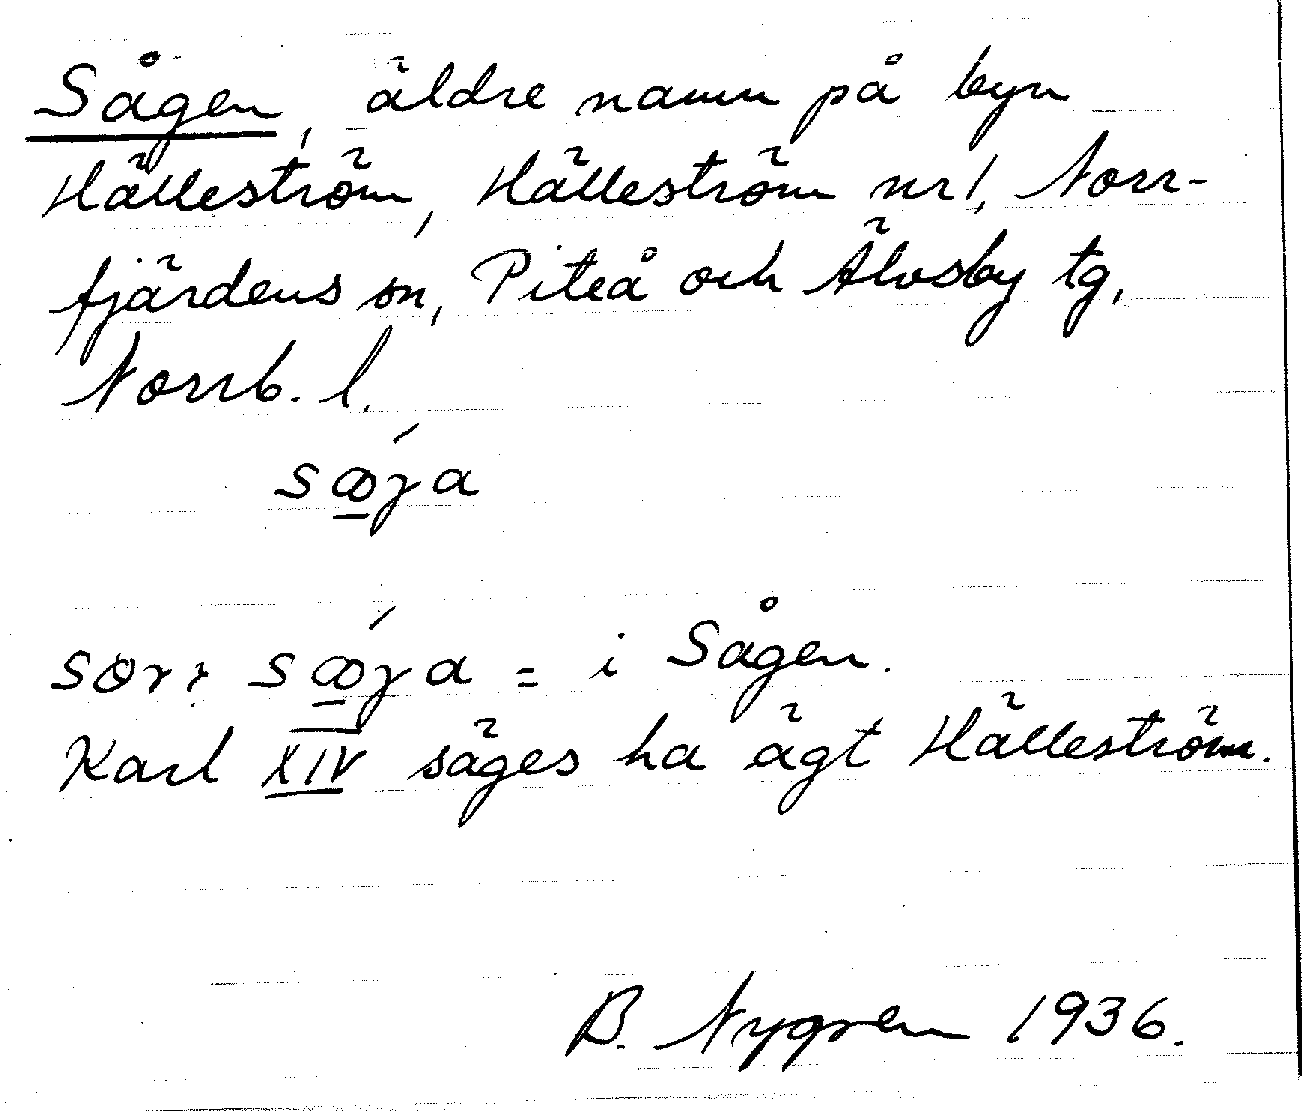 Sågen, äldre namn på byn
Hälleström, Hälleström nr 1, Norr-
fjärdens sn, Piteå och Älvsby tg,
Norrb. l.
= i Sågen.
Karl XIV säges ha ägt Hälleström.
B. Nygren 1936.